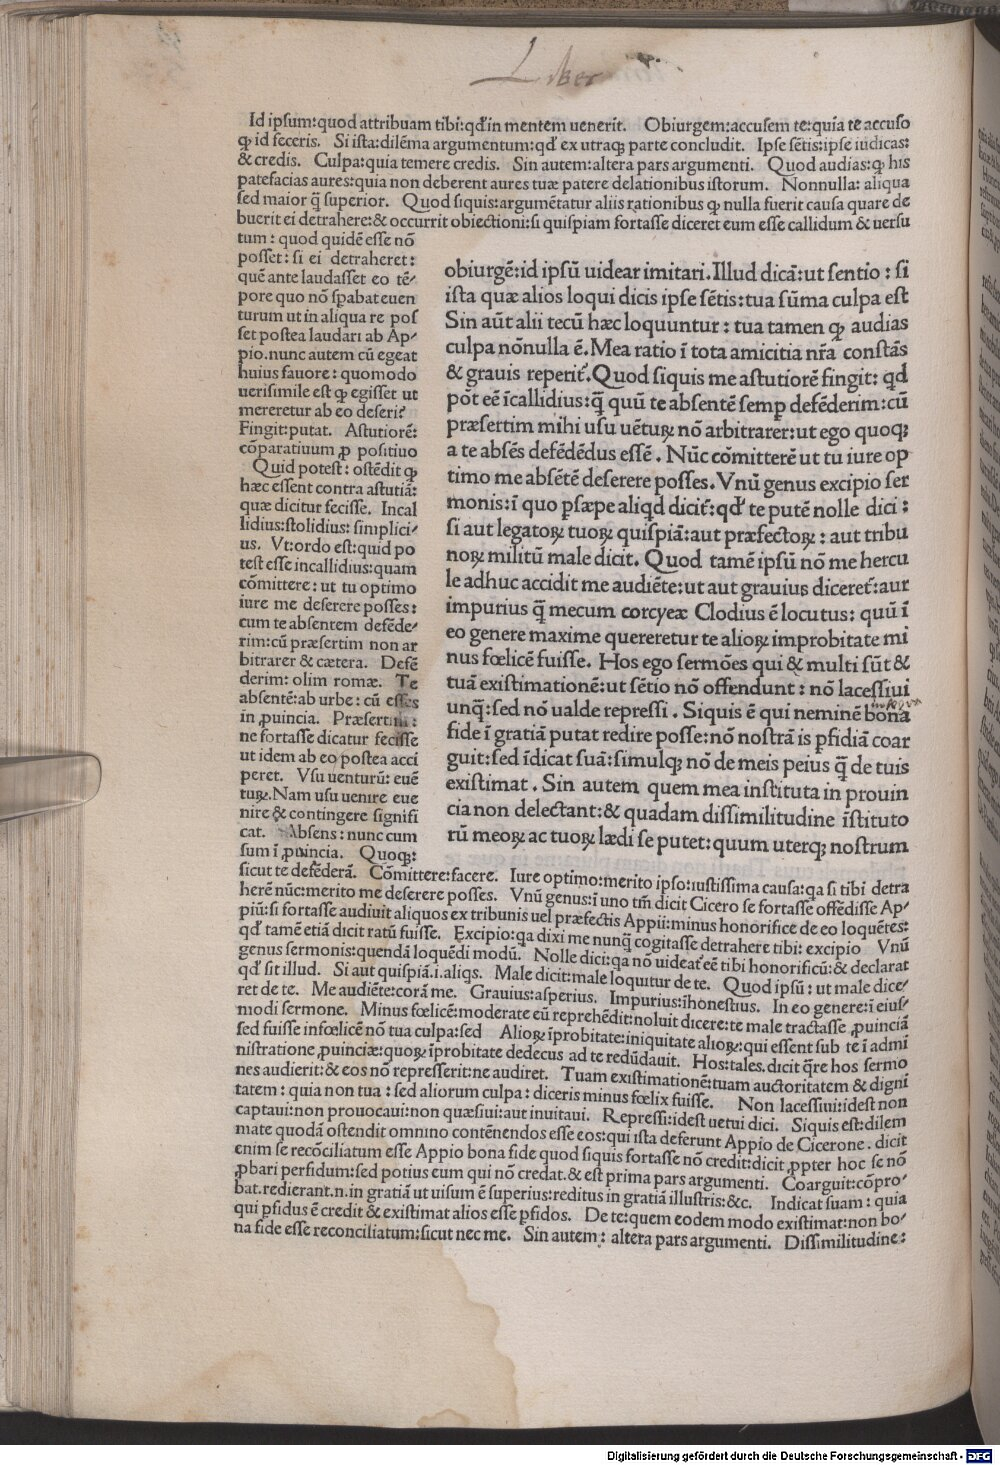 Liber
Id ipsum:quod attribuam tibi:qđ in mentem uenerit. Obiurgem:accusem te:quia te accuso
ꝙ id feceris. Si ista:dilēma argumentum:qđ ex utraqꝫ parte concludit. Ipse sētis:ipse iudicas:
& credis. Culpa:quia temere credis. Sin autem:altera pars argumenti. Quod audias:ꝙ his
patefacias aures:quia non deberent aures tuæ patere delationibus istorum. Nonnulla: aliqua
sed maior q̄ superior. Quod siquis:argumētatur aliis rationibus ꝙ nulla fuerit causa quare de
buerit ei detrahere:& occurrit obiectioni:si quispiam fortasse diceret eum esse callidum & uersu
tum: quod quidē esse nō
posset: si ei detraheret:
quē ante laudasset eo tē-
pore quo nō spabat euen
turum ut in aliqua re pos
set postea laudari ab Ap-
pio.nunc autem cū egeat
huius fauore: quomodo
uerisimile est ꝙ egisset ut
mereretur ab eo deseri?
Fingit:putat. Astutiorē:
cōparatiuum ꝓ positiuo
Quid potest: ostēdit ꝙ
hæc essent contra astutiā:
quæ dicitur fecisse. Incal
lidius:stolidius: simplici-
us. Vt:ordo est:quid po
test esse incallidius:quam
cōmittere: ut tu optimo
iure me deserere posses:
cum te absentem defēde-
rim:cū præsertim non ar
bitrarer & cætera. Defē
derim: olim romæ. Te
absentē:ab urbe: cū esses
in ꝓuincia. Præsertim:
ne fortasse dicatur fecisse
ut idem ab eo postea acci
peret. Vsu uenturū: euē
tuꝝ.Nam usu uenire eue
nire & contingere signifi
cat. Absens: nunc cum
sum ī ꝓuincia. Quoqꝫ:
obiurgē:id ipsū uidear imitari.Illud dicā:ut sentio: si
ista quæ alios loqui dicis ipse sētis:tua sūma culpa est
Sin aūt alii tecū hæc loquuntur: tua tamen ꝙ audias
culpa nōnulla ē.Mea ratio ī tota amicitia nr̄a constās
& grauis reperit̃.Quod siquis me astutiorē fingit: qđ
pōt eē īcallidius:q̄ quū te absentē semp defēderim:cū
præsertim mihi usu uētuꝝ nō arbitrarer:ut ego quoqꝫ
a te absēs defēdēdus essē. Nūc cōmitterē ut tu iure op
timo me absētē deserere posses.Vnū genus excipio ser
monis:ī quo psæpe aliqđ dicit̃:qđ te putē nolle dici:
si aut legatoꝝ tuoꝝ quispiā:aut præfectoꝝ: aut tribu
noꝝ militū male dicit. Quod tamē ipsū nō me hercu
le adhuc accidit me audiēte:ut aut grauius diceret̃:aut
impurius q̄ mecum corcyeæ Clodius ē locutus: quū ī
eo genere maxime quereretur te alioꝝ improbitate mi
nus fœlicē fuisse. Hos ego sermōes qui & multi sūt &
tuā existimationē:ut sētio nō offendunt: nō lacessiui
unq̄:sed nō ualde repressi. Siquis ē qui neminē bona
fide ī gratiā putat redire posse:nō nostrā is pfidiā coar
guit:sed īdicat suā:simulqꝫ nō de meis peius q̄ de tuis
existimat. Sin autem quem mea instituta in prouin
cia non delectant:& quadam dissimilitudine īstituto
rū meoꝝ ac tuoꝝ lædi se putet:quum uterqꝫ nostrum
sicut te defēderā. Cōmittere:facere. Iure optimo:merito ipso:iustissima causa:qa si tibi detra
herē nūc:merito me deserere posses. Vnū genus:ī uno tm̄ dicit Cicero se fortasse offēdisse Ap-
piū:si fortasse audiuit aliquos ex tribunis uel præfectis Appii:minus honorifice de eo loquētes:
qđ tamē etiā dicit ratū fuisse. Excipio:qa dixi me nunq̄ cogitasse detrahere tibi: excipio Vnū
genus sermonis:quendā loquēdi modū. Nolle dici:qa nō uideat̃ eē tibi honorificū:& declarat
qđ sit illud. Si aut quispiā.i.aliqs. Male dicit:male loquitur de te. Quod ipsū: ut male dice-
ret de te. Me audiēte:corā me. Grauius:asperius. Impurius:īhonestius. In eo genere:ī eius-
modi sermone. Minus fœlicē:moderate eū reprehēdit:noluit dicere:te male tractasse ꝓuinciā
sed fuisse infœlicē nō tua culpa:sed Alioꝝ īprobitate:iniquitate alioꝝ:qui essent sub te ī admi
nistratione ꝓuinciæ:quoꝝ īprobitate dedecus ad te redūdauit. Hos:tales.dicit q̄re hos sermo
nes audierit:& eos nō represserit:ne audiret. Tuam existimationē:tuam auctoritatem & digni
tatem: quia non tua: sed aliorum culpa: diceris minus fœlix fuisse. Non lacessiui:idest non
captaui:non prouocaui:non quæsiui:aut inuitaui. Repressi:idest uetui dici. Siquis est:dilem
mate quodā ostendit omnino contēnendos esse eos:qui ista deferunt Appio de Cicerone. dicit
enim se recōciliatum esse Appio bona fide quod siquis fortasse nō credit:dicit ꝓpter hoc se nō
ꝓbari perfidum:sed potius eum qui nō credat.& est prima pars argumenti. Coarguit:cōpro-
bat.redierant.n.in gratiā ut uisum ē superius:reditus in gratiā illustris:&c. Indicat suam: quia
qui pfidus ē credit & existimat alios esse pfidos. De te:quem eodem modo existimat:non bo-
na fide esse reconciliatum:sicut nec me. Sin autem: altera pars argumenti. Dissimilitudine:
Digitalisierung gefördert durch die Deutsche Forschungsgemeinschaft - DFG